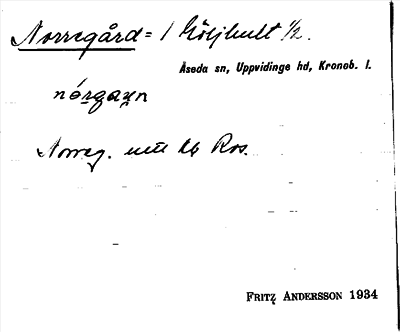 Norregård = 1 Höljhult ½.
Åseda sn, Uppvidinge hd, Kronob. l.
nórgaṵn
Norreg. Ros.
FRITZ ANDERSSON 1934